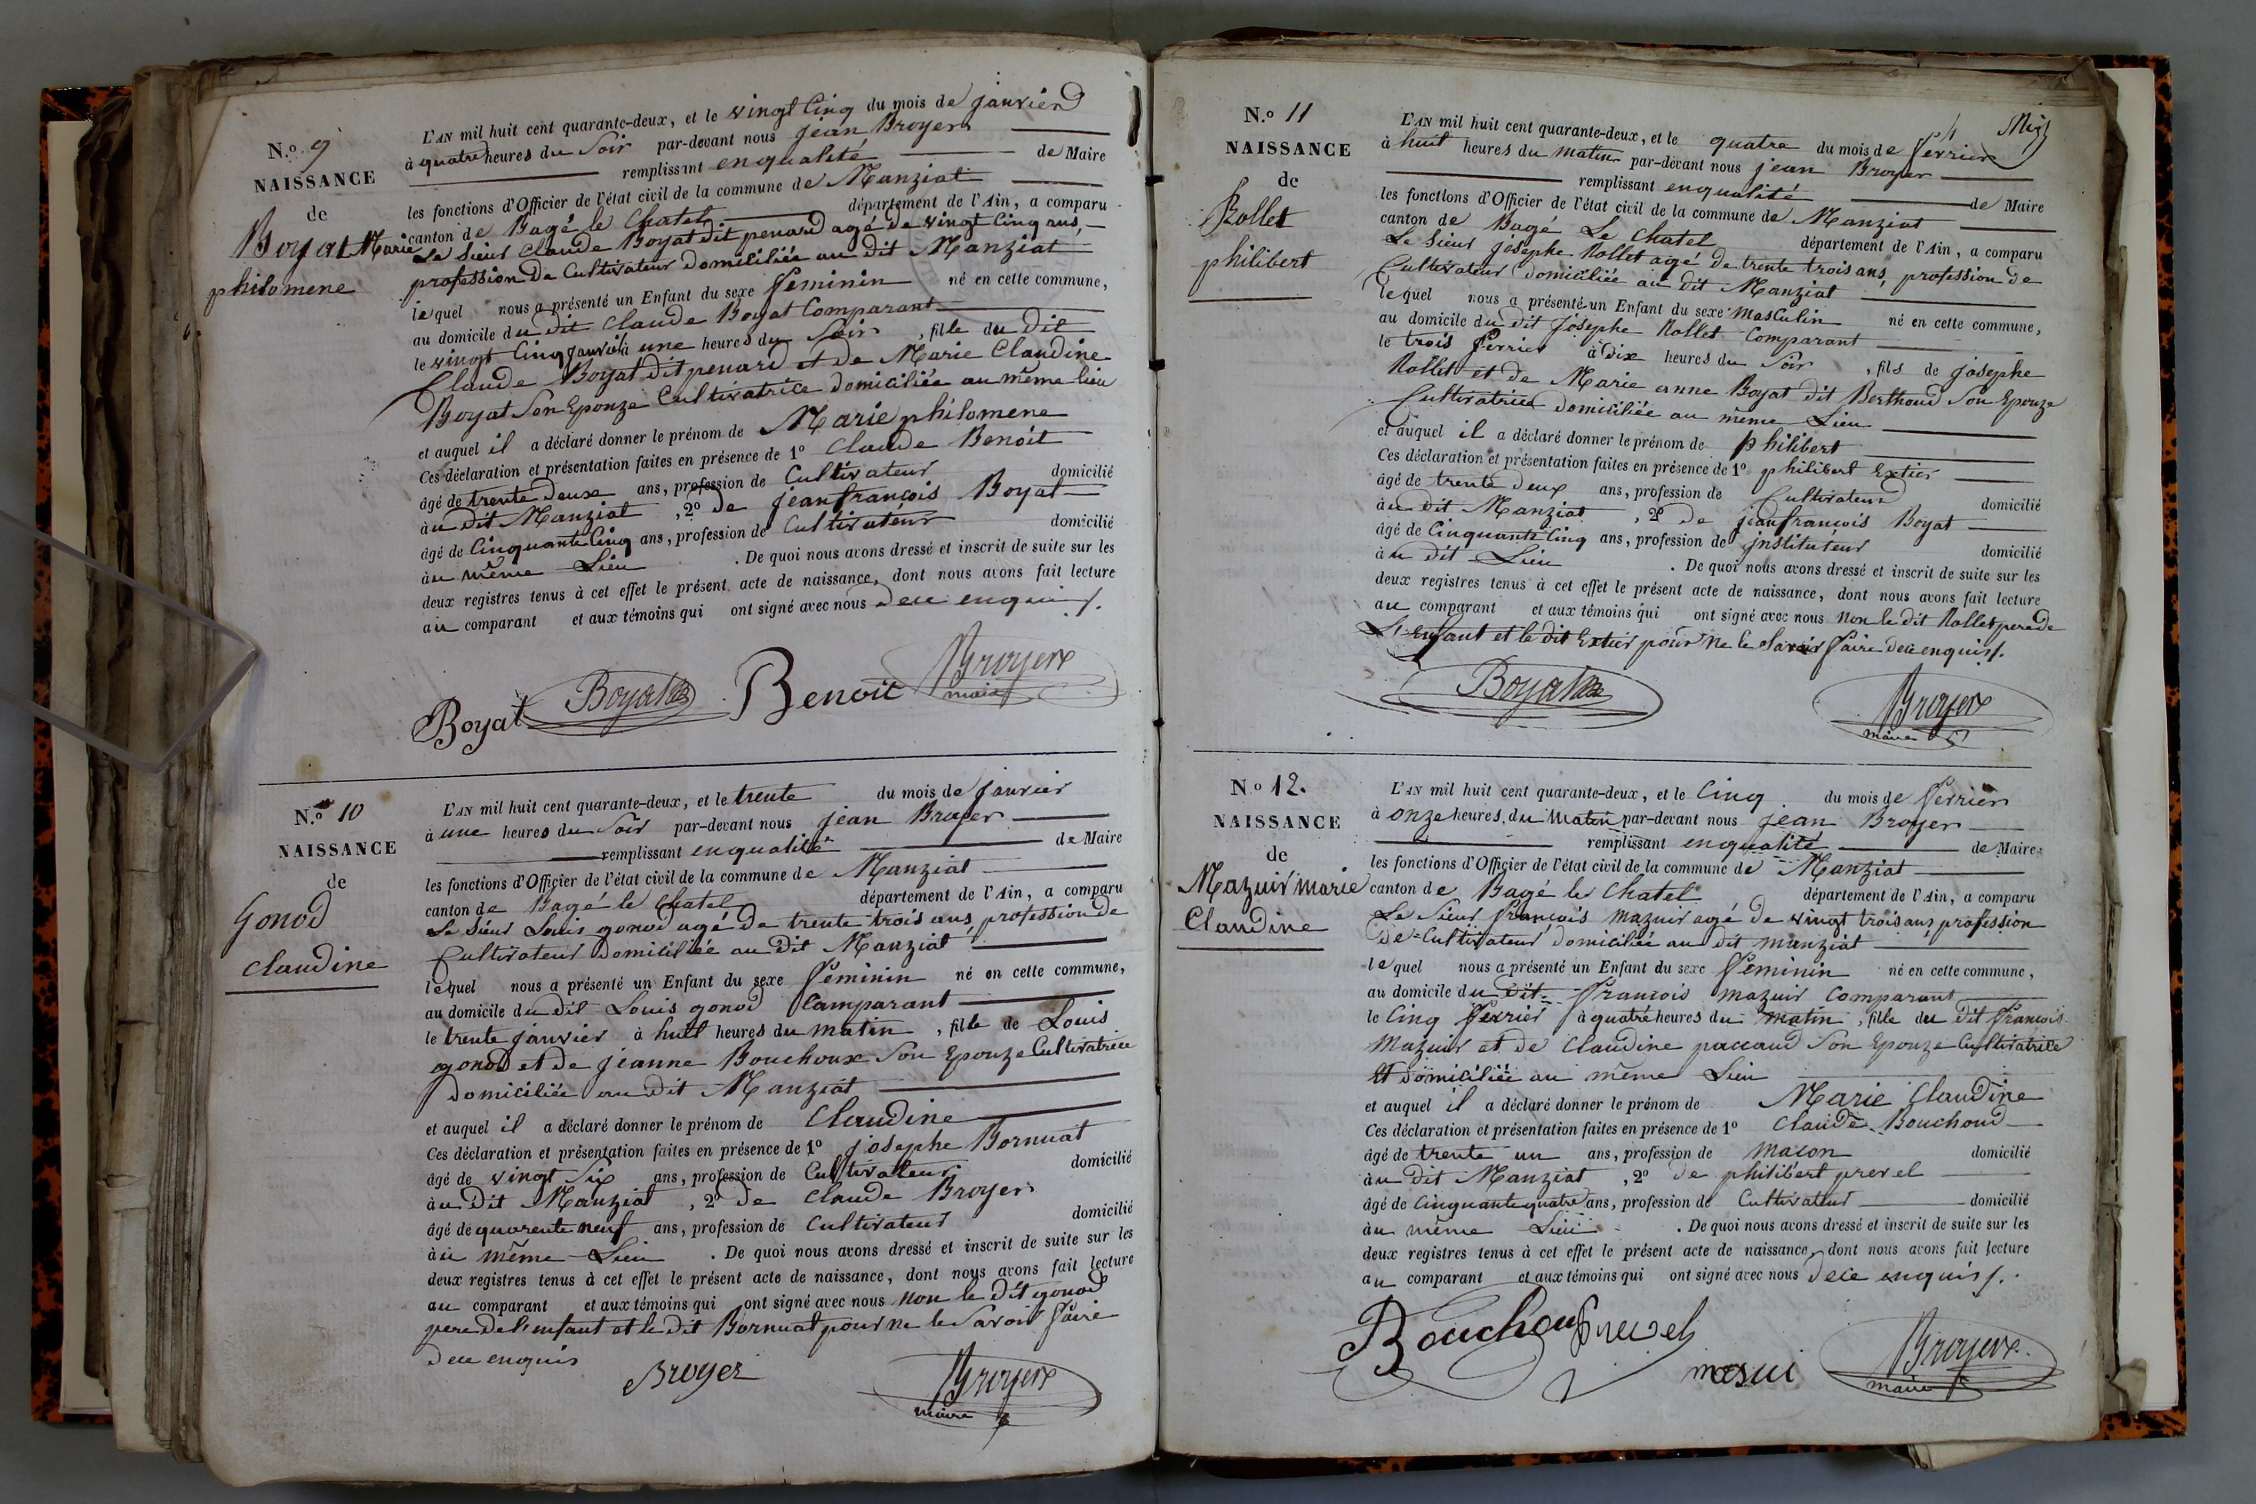 N.º 9
NAISSANCE
de
Boyat Marie
philomene
L'AN mil huit cent quarante-deux, et le vingt Cinq du mois de janvier
à quatre heures du Soir par-devant nous jean Broyer
remplissant enqualité de Maire
les fonctions d'Officier de l'état civil de la commune de Manziat
canton de Bagé le Chatel département de l'Ain, a comparu
Le Sieur Claude Boyat dit penard agé de vingt Cinq ans,
profession De Cultivateur domiciliée au dit Manziat
lequel nous a présenté un Enfant du sexe féminin né en cette commune,
au domicile du dit Claude Boyat Comparant
le vingt Cinq janvier à une heures du Soir, fille du dit
Claude Boyat dit penard et de Marie Claudine
Boyat Son Epouze Cultivatrice domiciliée au même lieu
et auquel il a déclaré donner le prénom de Marie philomene
Ces déclaration et présentation faites en présence de 1º Claude Benoit
âgé de trente deux ans, profession de Cultivateur domicilié
àu dit Manziat, 2º de jean françois Boyat
âgé de Cinquante Cinq ans, profession de Cultivateur domicilié
àu même Lieu. De quoi nous avons dressé et inscrit de suite sur les
deux registres tenus à cet effet le présent acte de naissance, dont nous avons fait lecture
au comparant et aux témoins qui ont signé avec nous de ce enquis /.
Boyat Boyat Benoit Broyer
maire
N.º 10
NAISSANCE
de
Gonod
claudine
L'AN mil huit cent quarante-deux, et le trente du mois de janvier
à une heures du Soir par-devant nous jean Broyer
remplissant enqualité de Maire
les fonctions d'Officier de l'état civil de la commune de Manziat
canton de Bagé le Chatel département de l'Ain, a comparu
Le Sieur Louis gonod agé de trente trois ans, profession de
Cultivateur domiciliée au dit Manziat
lequel nous a présenté un Enfant du sexe féminin né en cette commune,
au domicile du dit Louis gonod Comparant
le trente janvier à huit heures du matin, fille de Louis
gonod et de jeanne Bouchoux Son Epouze Cultivatrice
domiciliée au dit Manziat
et auquel il a déclaré donner le prénom de Claudine
Ces déclaration et présentation faites en présence de 1º josephe Bornuat
âgé de vingt Six ans, profession de Cultivateur domicilié
àu dit Manziat, 2º de Claude Broyer
âgé de quarente neuf ans, profession de Cultivateur domicilié
àu même Lieu. De quoi nous avons dressé et inscrit de suite sur les
deux registres tenus à cet effet le présent acte de naissance, dont nous avons fait lecture
au comparant et aux témoins qui ont signé avec nous non le dit gonod
pere de l'enfant et le dit Bornuat pour ne le Savoir faire
de ce enquis
Broyer Broyer
maire
N.º 11
NAISSANCE
de
Rollet
philibert
L'AN mil huit cent quarante-deux, et le quatre du mois de fevrier
à huit heures du matin par-devant nous jean Broyer
remplissant enqualité de Maire
les fonctions d'Officier de l'état civil de la commune de Manziat
canton de Bagé Le Chatel département de l'Ain, a comparu
Le Sieur josephe Rollet agé de trente trois ans, profession de
Cultivateur domiciliée au dit Manziat
lequel nous a présenté un Enfant du sexe masculin né en cette commune,
au domicile du dit josephe Rollet Comparant
le trois fevrier à Dix heures du Soir, fils de josephe
Rollet et de Marie anne Boyat dit Berthoud Son Epouze
Cultivatrice domiciliée au même Lieu
et auquel il a déclaré donner le prénom de philibert
Ces déclaration et présentation faites en présence de 1º philibert Extier
âgé de trente deux ans, profession de Cultivateur domicilié
àu dit Manziat, 2º de jean françois Boyat
âgé de Cinquante Cinq ans, profession de instituteur domicilié
àu dit Lieu. De quoi nous avons dressé et inscrit de suite sur les
deux registres tenus à cet effet le présent acte de naissance, dont nous avons fait lecture
au comparant et aux témoins qui ont signé avec nous non le dit Rollet pere de
L'enfant et le dit Extier pour ne le Savoir faire de ce enquis /.
Boyat Broyer
maire
N.º 12.
NAISSANCE
de
Mazuir marie
Claudine
L'AN mil huit cent quarante-deux, et le Cinq du mois de fevrier
à onze heures du matin par-devant nous jean Broyer
remplissant enqualité de Maire
les fonctions d'Officier de l'état civil de la commune de Manziat
canton de Bagé le Chatel département de l'Ain, a comparu
Le Sieur françois Mazuir agé de vingt trois ans, profession
de Cultivateur domiciliée au dit manziat
lequel nous a présenté un Enfant du sexe féminin né en cette commune,
au domicile du dit françois mazuir Comparant
le Cinq fevrier à quatre heures du matin, fille du dit françois
Mazuir et de Claudine paccaud Son Epouze Cultivatrice
et domiciliée au même Lieu
et auquel il a déclaré donner le prénom de Marie Claudine
Ces déclaration et présentation faites en présence de 1º Claude Bouchoud
âgé de trente un ans, profession de macon domicilié
àu dit Manziat, 2º de philibert prevel
âgé de Cinquante quatre ans, profession de Cultivateur domicilié
àu même Lieu. De quoi nous avons dressé et inscrit de suite sur les
deux registres tenus à cet effet le présent acte de naissance, dont nous avons fait lecture
au comparant et aux témoins qui ont signé avec nous de ce enquis /.
Bouchou prevel
mesui Broyer
maire